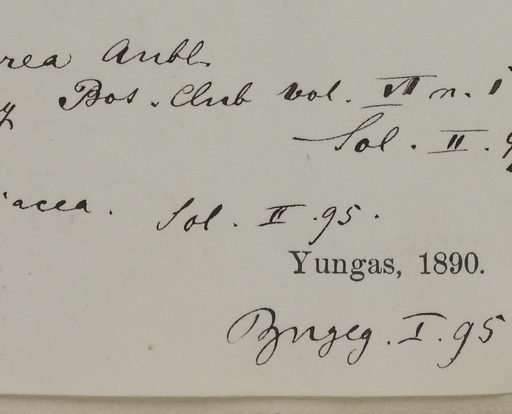 rea Aubl.
y Bot. Club vol. VI n. 1
Sol. II. 9
iacea. Sol. II. 95.
Yungas, 1890.
Bngeg. I. 95